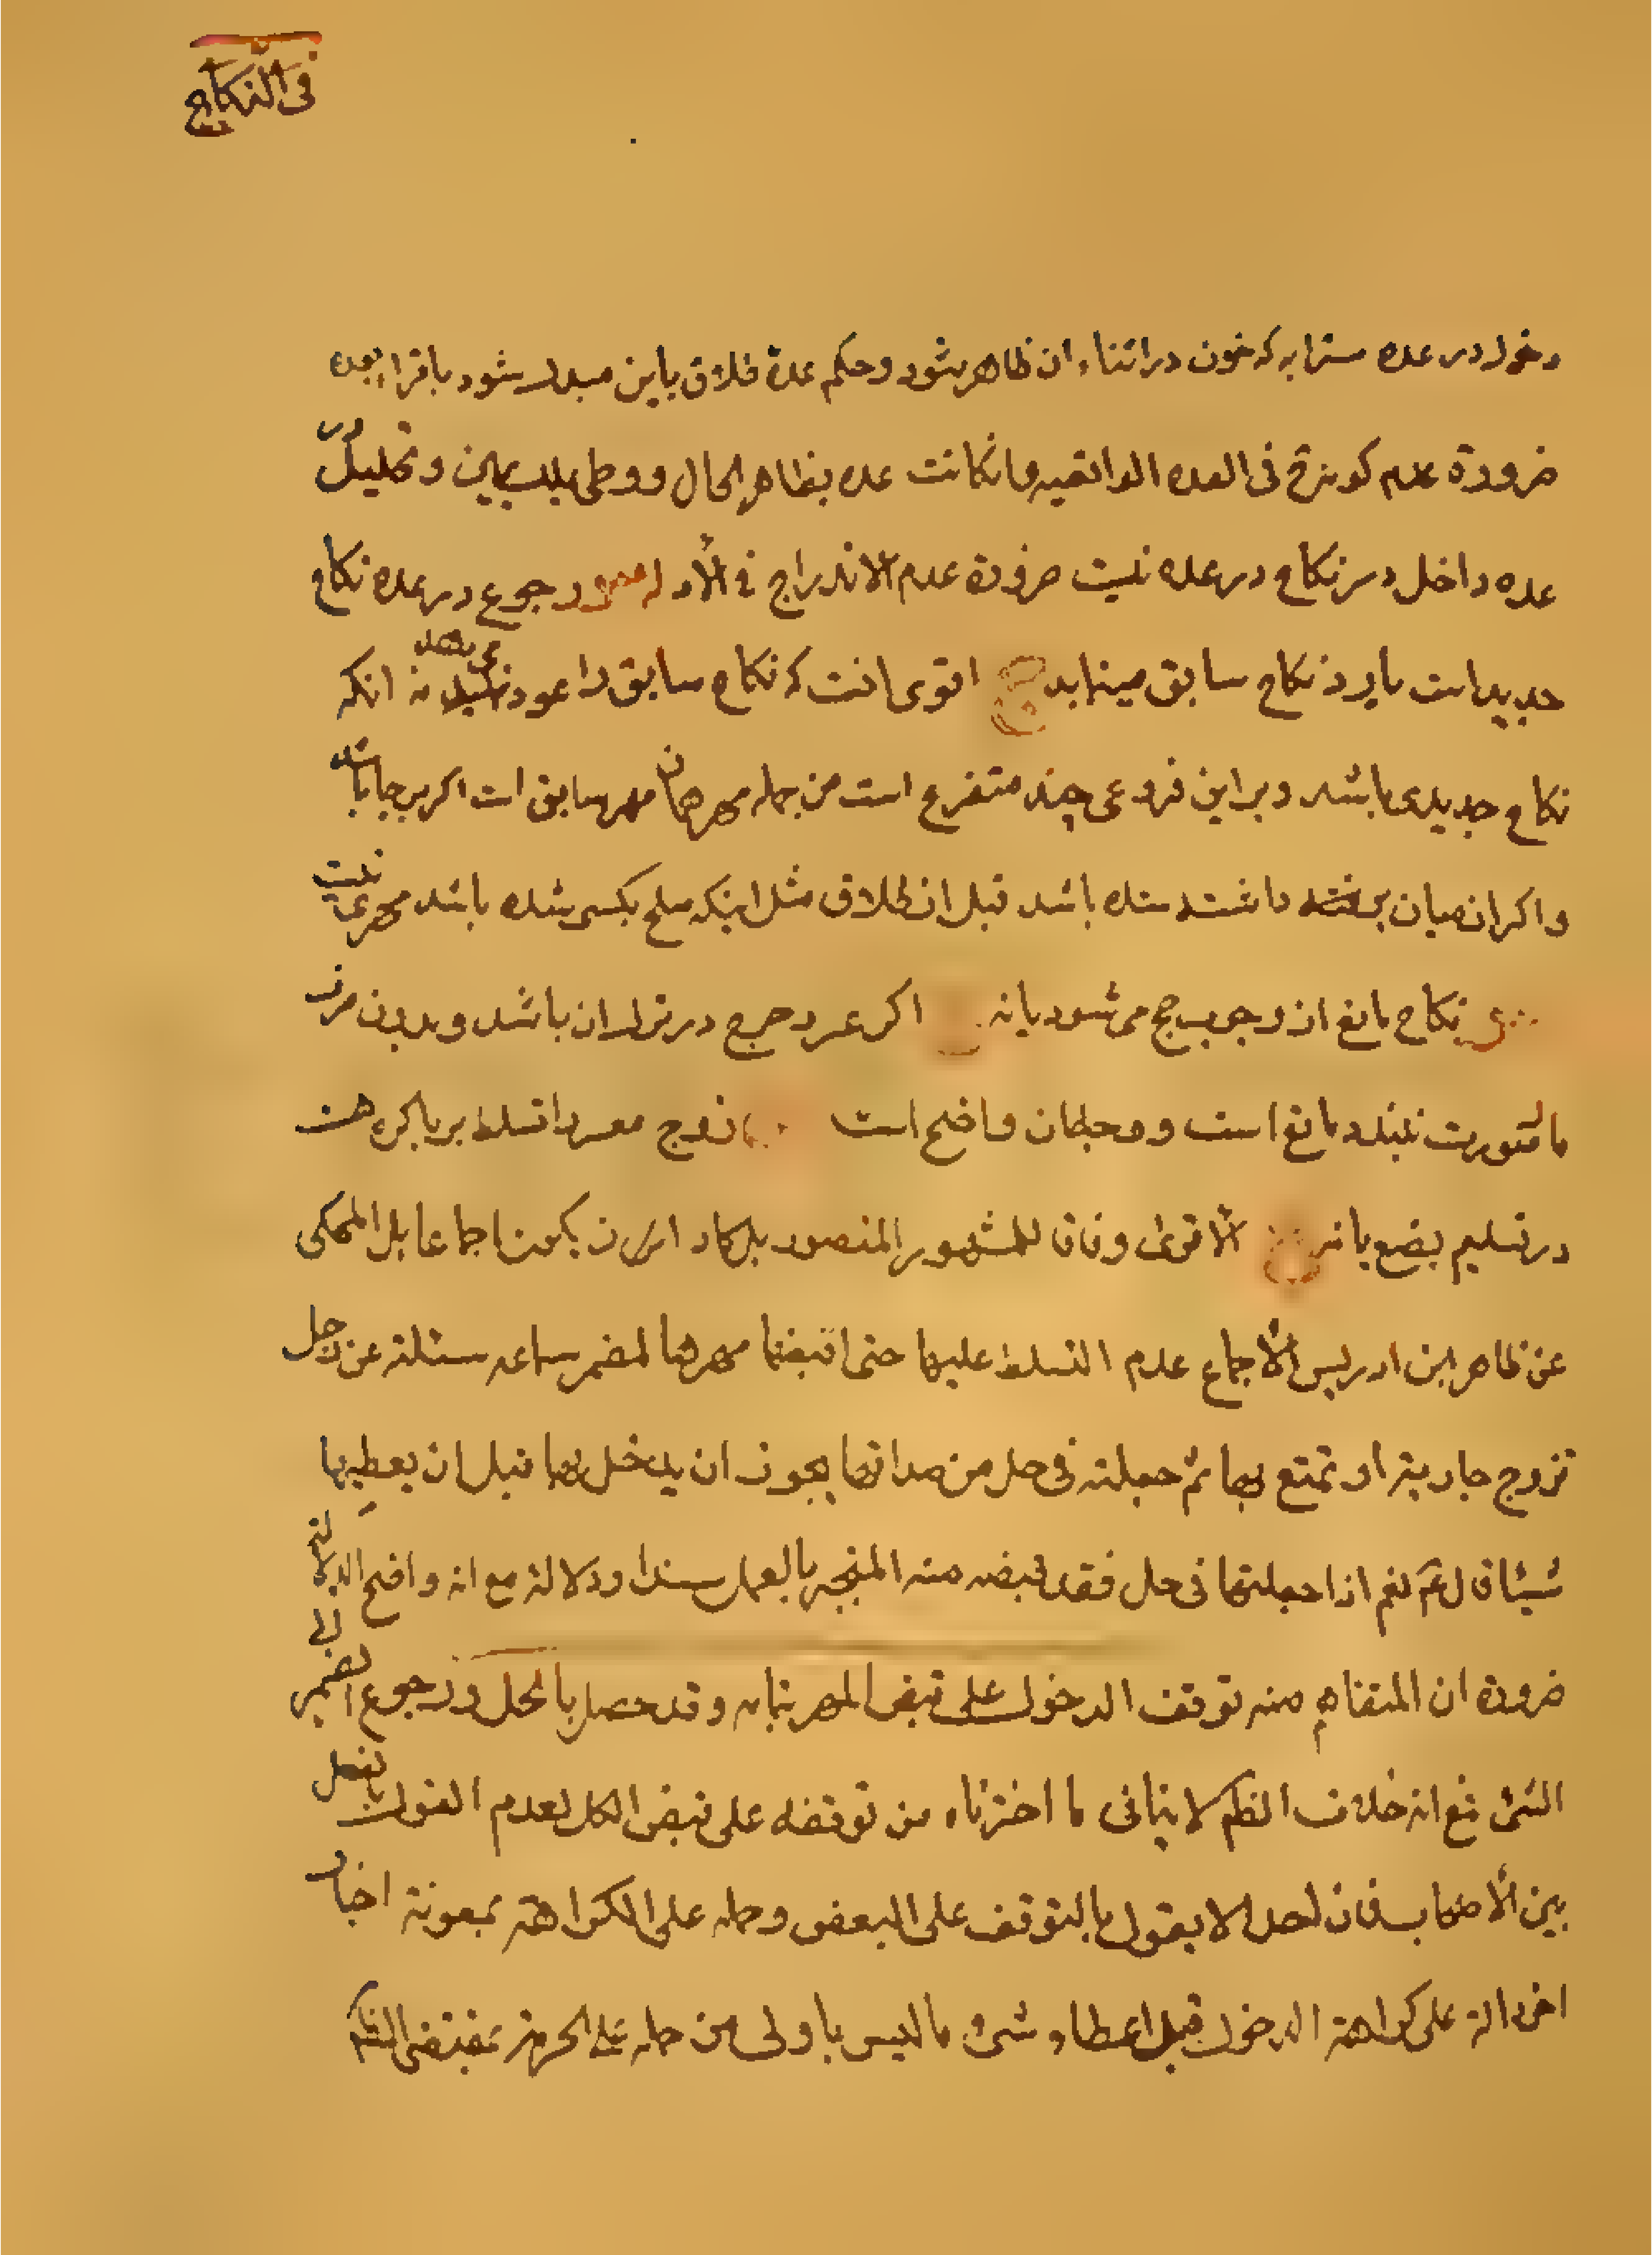 فی النکاح
دخول در عده مسترابه که خون در اثناء ان ظاهر شود وحکم عدة طلاق باین مبدل شود باقراء بعده
ضرورة عدم کونه فی العده الواقعیه وانکانت عده بظاهر الحال ووطی بملک یمین وتحلیل در
عده داخل در نکاح در عده نیست ضرورة عدم الاندراج فی الأدله رجوع در عده نکاح
جدید است یا رد نکاح سابق مینماید ج اقوی انست که نکاح سابق را عود می دهد نه انکه
نکاح جدیدی باشد وبر این فروعی چند متفرع است من جمله مهر همان مهر سابق است اکر برجا باشد
واکر از میان برداشته شده باشد قبل از طلاق مثل اینکه صلح بکسی شده باشد مهری نیست
نکاح مانع از وجوب حج می شود یا نه اکر عسر وحرج در ترک ان باشد وبدون مرز
مانع است ومحطان واضح است زوج معسر را تسلط بر باکره هست
در تسلیم بضع یا نه ج الأقوی وفاقا للمشهور المنصور بل کاد ان یکون اجماعا بل المحکی
عن ظاهر ابن ادریس الأجماع عدم التسلط علیها حتی اقبضها مهرها لمضمر سماعه سئلته عن رجل
تزوج جاریة او تمتع بها ثم جعلته فی حل من صداقها یجوز ان یدخل بها قبل ان یعطیها
شیئا قال ع نعم اذا جعلتها فی حل فقد قبضه منه المنجبر بالعمل سندا ودلالة مع انه واضح الدلالة
ضرورة ان المتفاهم منه توقف الدخول علی قبض المهر بتمامه وقد حصل بالحل ورجوع الضمیر الی
الشئ مع انه خلاف الظم لا ینافی ما اخترناه من توقفه علی قبض الکل لعدم القول بالفصل
بین الأصحاب فان احدا لا یقول بالتوقف علی البعض وحمله علی الکراهة بمعونة اخبار
اخر دالة علی کراهة الدخول قبل اعطاء شئ ما لیس باولی من حمله علی الحرمة بمقتضی